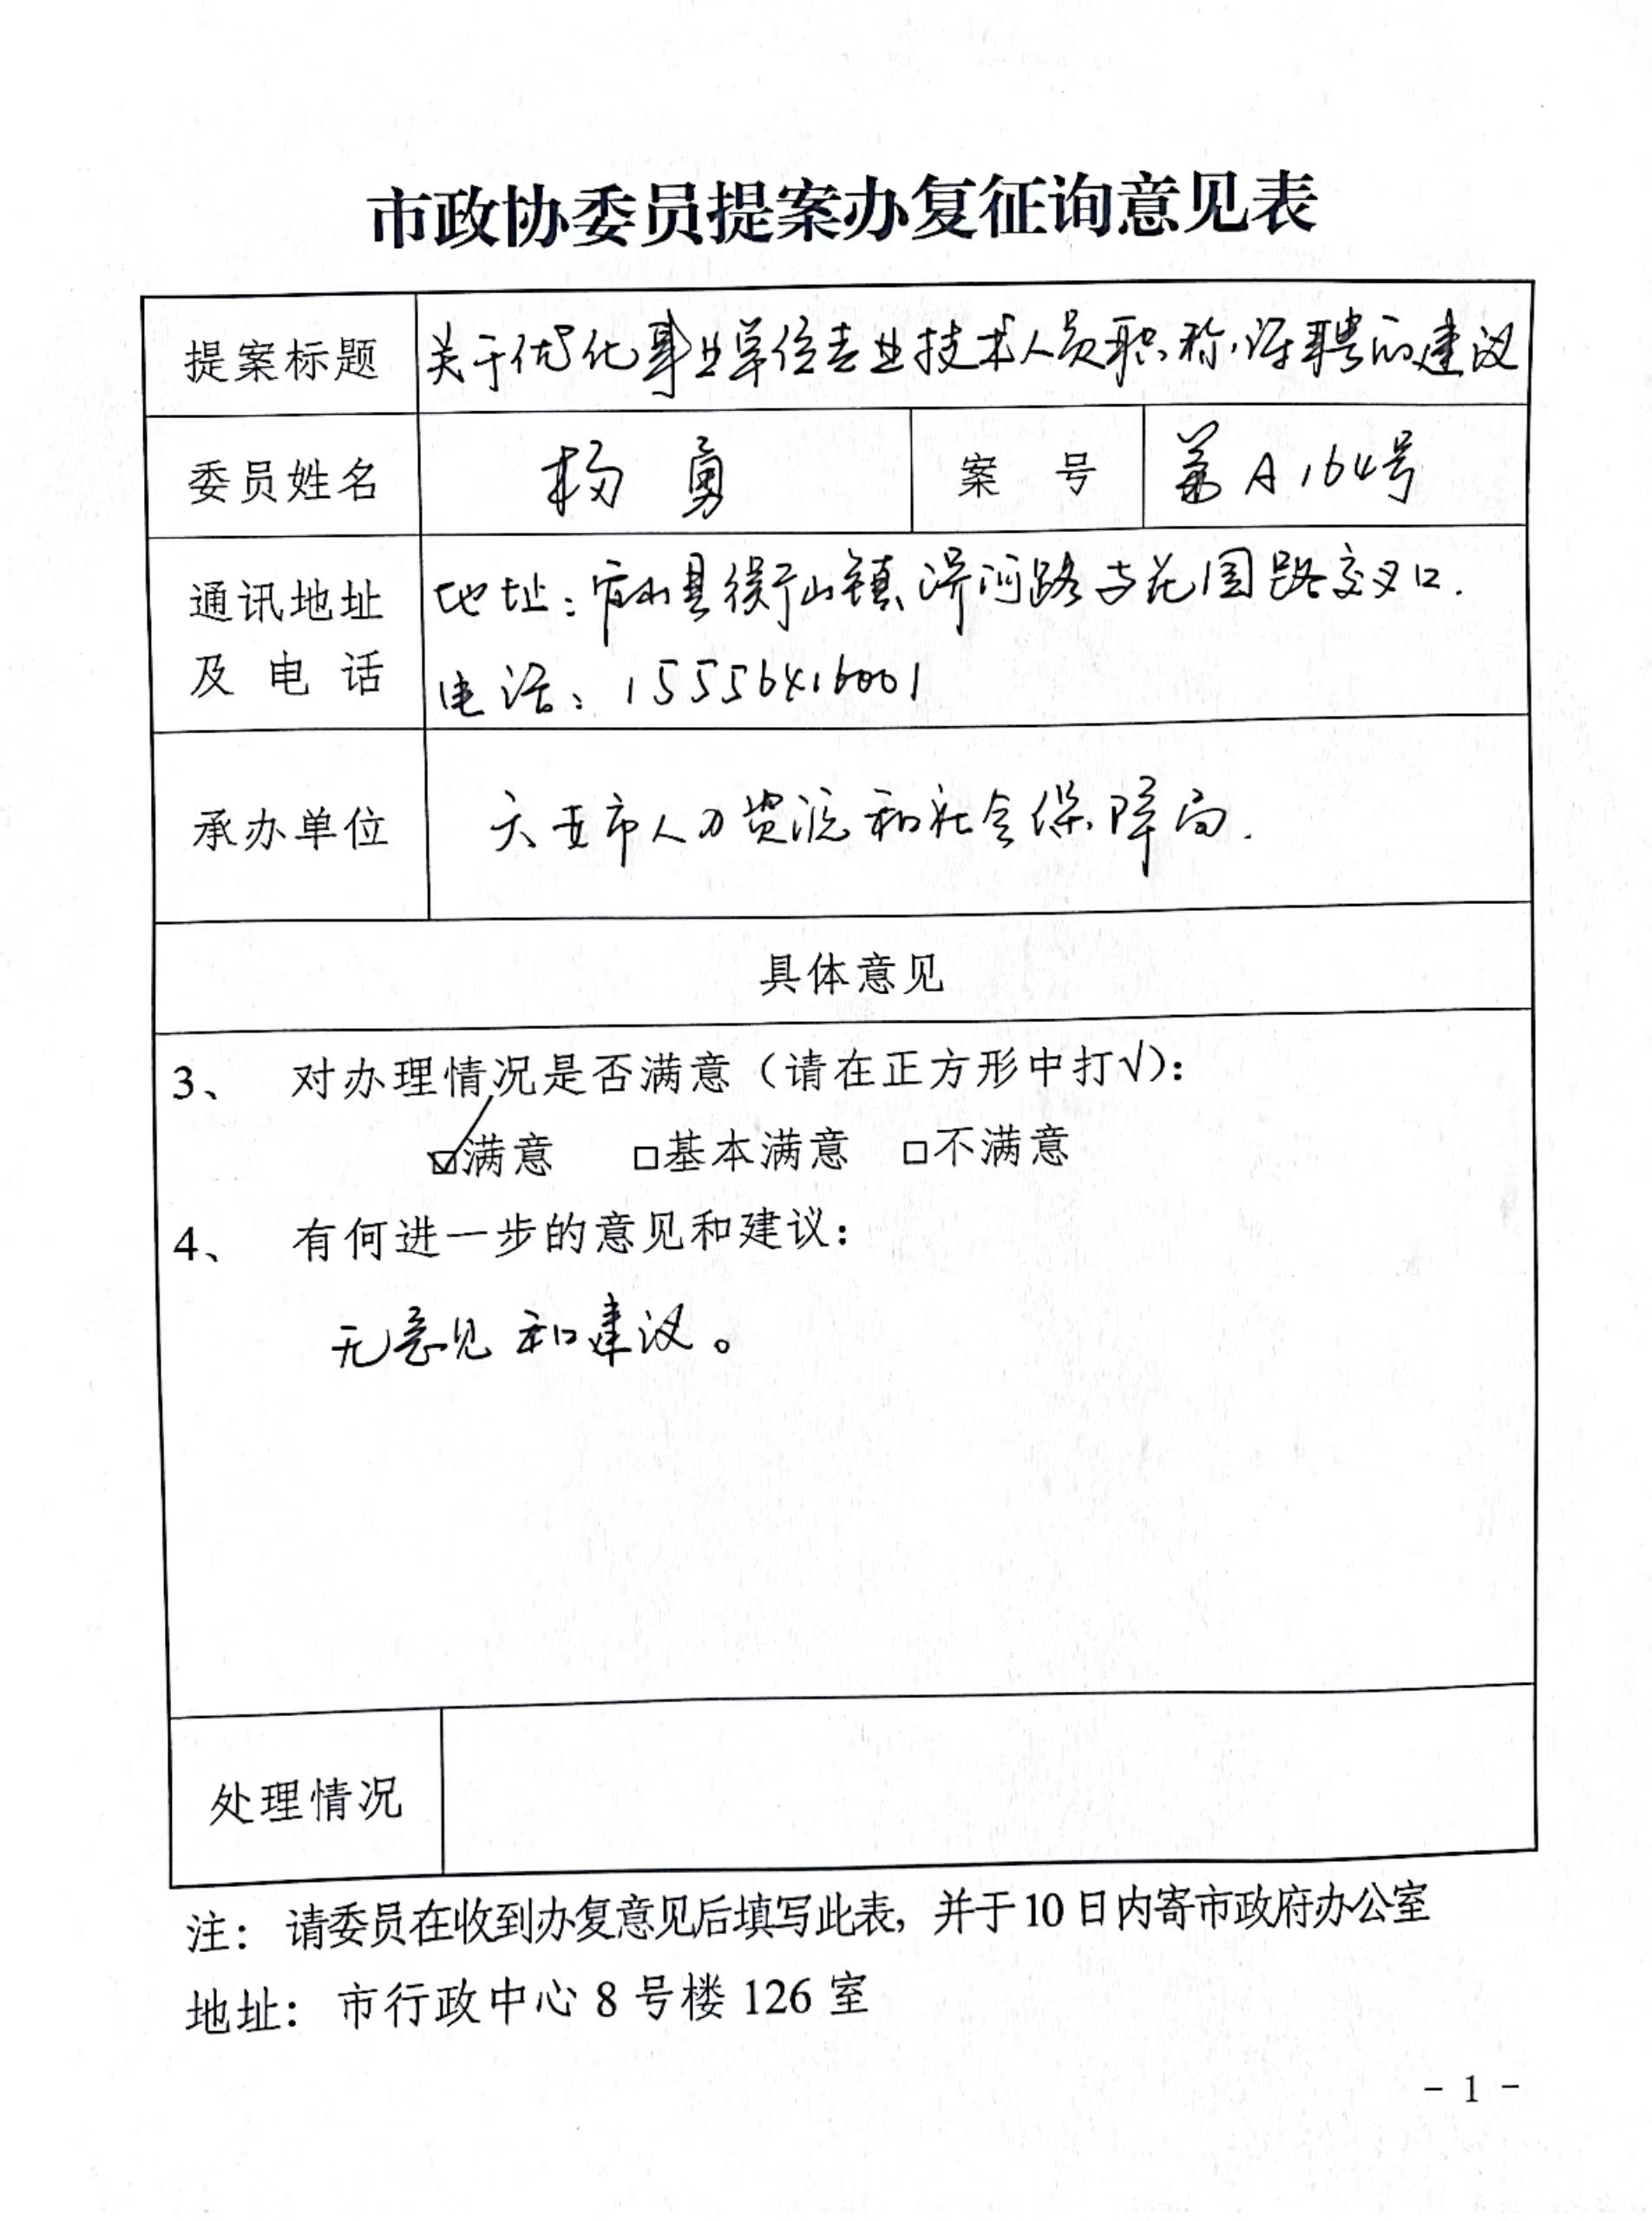 市政协委员提案办复征询意见表
提案标题 关于优化事业单位专业技术人员职称评聘的建议
委员姓名 杨勇 案号 第A164号
通讯地址 地址：霍山县衡山镇淠河路与花园路交叉口.
及电话 电话：15556416001
承办单位 六安市人力资源和社会保障局.
具体意见
3、 对办理情况是否满意（请在正方形中打√）：
☑满意 □基本满意 □不满意
4、 有何进一步的意见和建议：
无意见和建议。
处理情况
注： 请委员在收到办复意见后填写此表，并于10日内寄市政府办公室
地址： 市行政中心8号楼126室
- 1 -